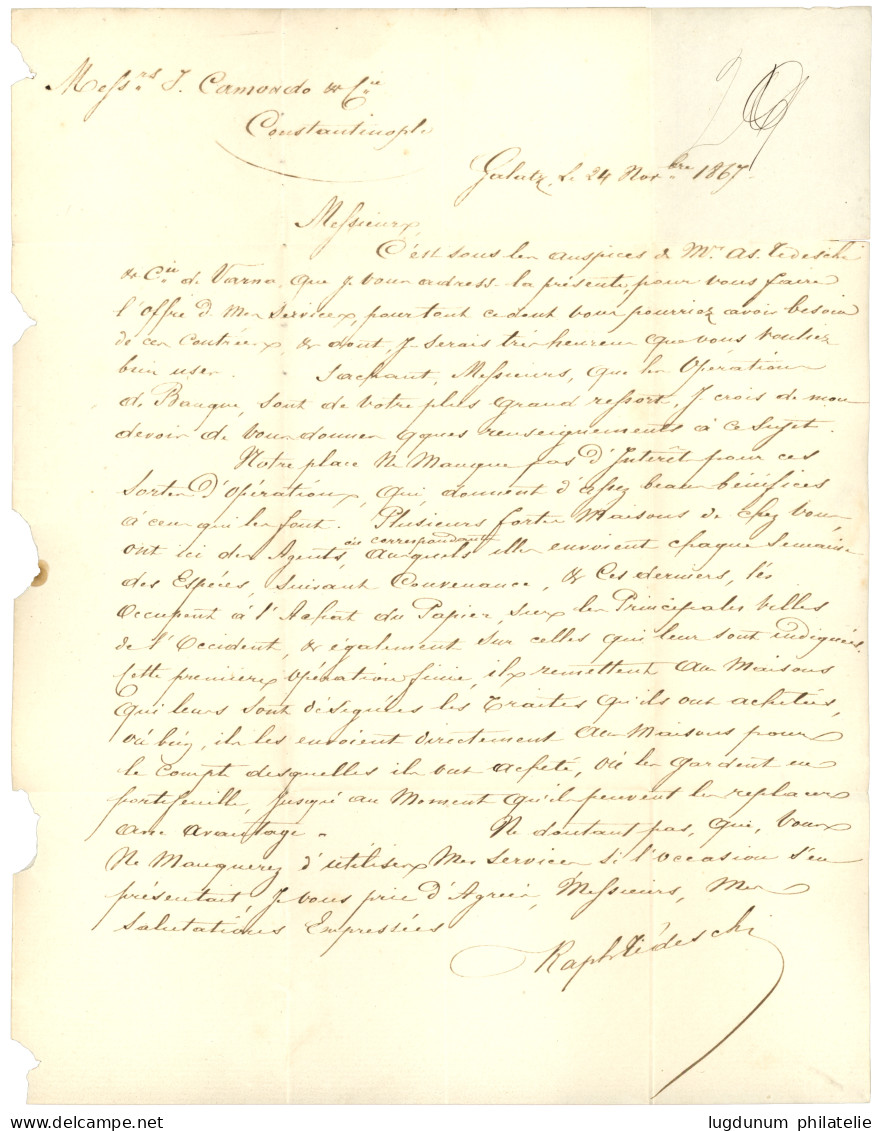 Messrs. J. Camondo & Cie
Constantinople
Galatz, le 24 Novbre 1867
Messieurs,
C'est sous les auspices de Mr. As. Tedeschi
& Cie de Varna, que je vous adresse la présente, pour vous faire
l'offre de mes services, pour tout ce dont vous pourriez avoir besoin
de ces contrées, & dont, je serais très heureux que vous vouliez
bien user. Sachant, Messieurs, que les Opérations
de Banque, sont de votre plus grand ressort, je crois de mon
devoir de vous donner qques renseignements à ce sujet.
Notre place ne manque pas d'Intérêt pour ces
sortes d'opérations, qui, donnent d'assez beaux bénéfices
à ceux qui les font. Plusieurs fortes Maisons de chez vous
ont ici des Agents, ou correspondants auxquels elles envoient chaque semaine
des Espèces, suivant Convenance, & ces derniers, les
occupent à l'Achat du Papier, sur les Principales villes
de l'Occident, & également sur celles qui leur sont indiquées.
Cette première opération finie, ils remettent aux Maisons
qui leurs sont désignées les Traites qu'ils ont achetées,
où bien, ils les envoient directement aux Maisons pour
le compte desquelles ils ont acheté, où les gardent en
portefeuille, jusqu'au moment qu'ils peuvent les replacer
avec avantage. Ne doutant pas, que, vous
ne manquerez d'utiliser mes services si l'occasion s'en
présentait, je vous prie d'Agréer, Messieurs, mes
salutations Empressées
Raph Tédeschi
lugdunum philatelie